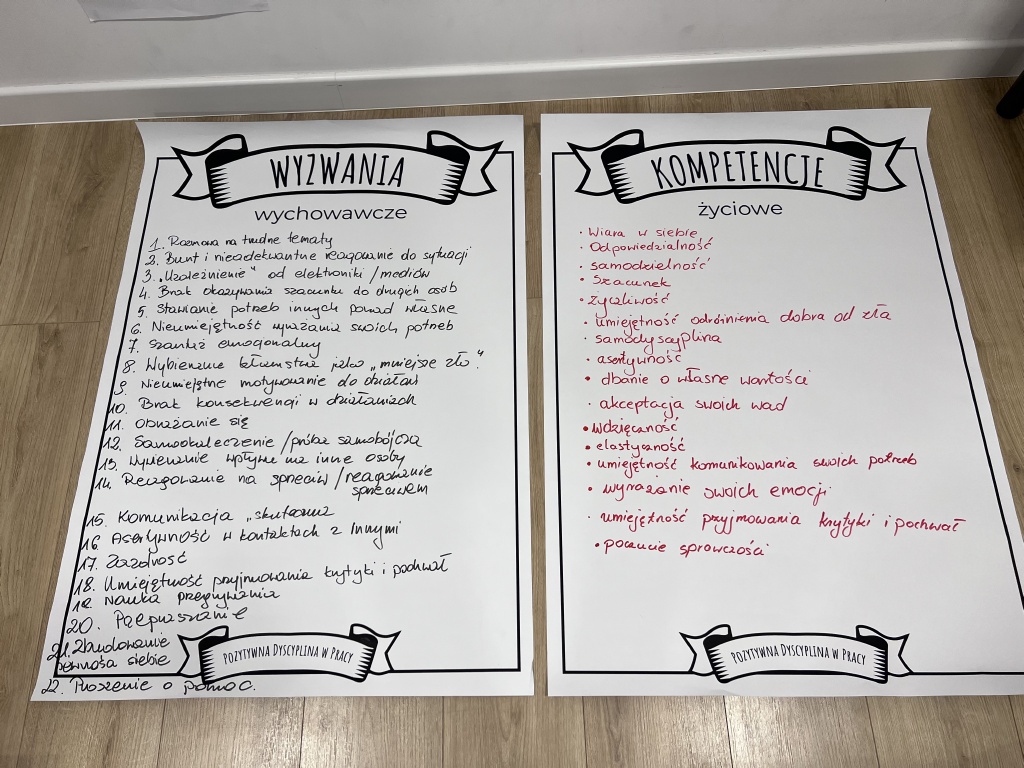 WYZWANIA
wychowawcze
1. Rozmowa na trudne tematy
2. Bunt i nieadekwatne reagowanie do sytuacji
3. „Uzależnienie" od elektroniki / mediów
4. Brak okazywania szacunku do drugich osób
5. Stawianie potrzeb innych ponad własne
6. Nieumiejętność wyrażania swoich potrzeb
7. Szantaż emocjonalny
8. Wybieranie kłamstwa jako „mniejsze zło".
9. Nieumiejętne motywowanie do działań
10. Brak konsekwencji w działaniach
11. Obrażanie się
12. Samookaleczenie / próba samobójcza
13. Wywieranie wpływu na inne osoby
14. Reagowanie na sprzeciw / reagowanie
sprzeciwem
15. Komunikacja „skuteczna
16. Asertywność w kontaktach z innymi
17. Zazdrość
18. Umiejętność przyjmowania krytyki i pochwał
19. Nauka przegrywania
20. Przepraszanie
21. Zbudowanie
pewności siebie
22. Proszenie o pomoc.
POZYTYWNA DYSCYPLINA W PRACY
KOMPETENCJE
życiowe
• Wiara w siebie
• Odpowiedzialność
• samodzielność
• Szacunek
• życzliwość
• umiejętność odróżnienia dobra od zła
• samodyscyplina
• asertywność
• dbanie o własne wartości
• akceptacja swoich wad
• wdzięczność
• elastyczność
• umiejętność komunikowania swoich potrzeb
• wyrażanie swoich emocji
• umiejętność przyjmowania krytyki i pochwał
• poczucie sprawczości
POZYTYWNA DYSCYPLINA W PRACY